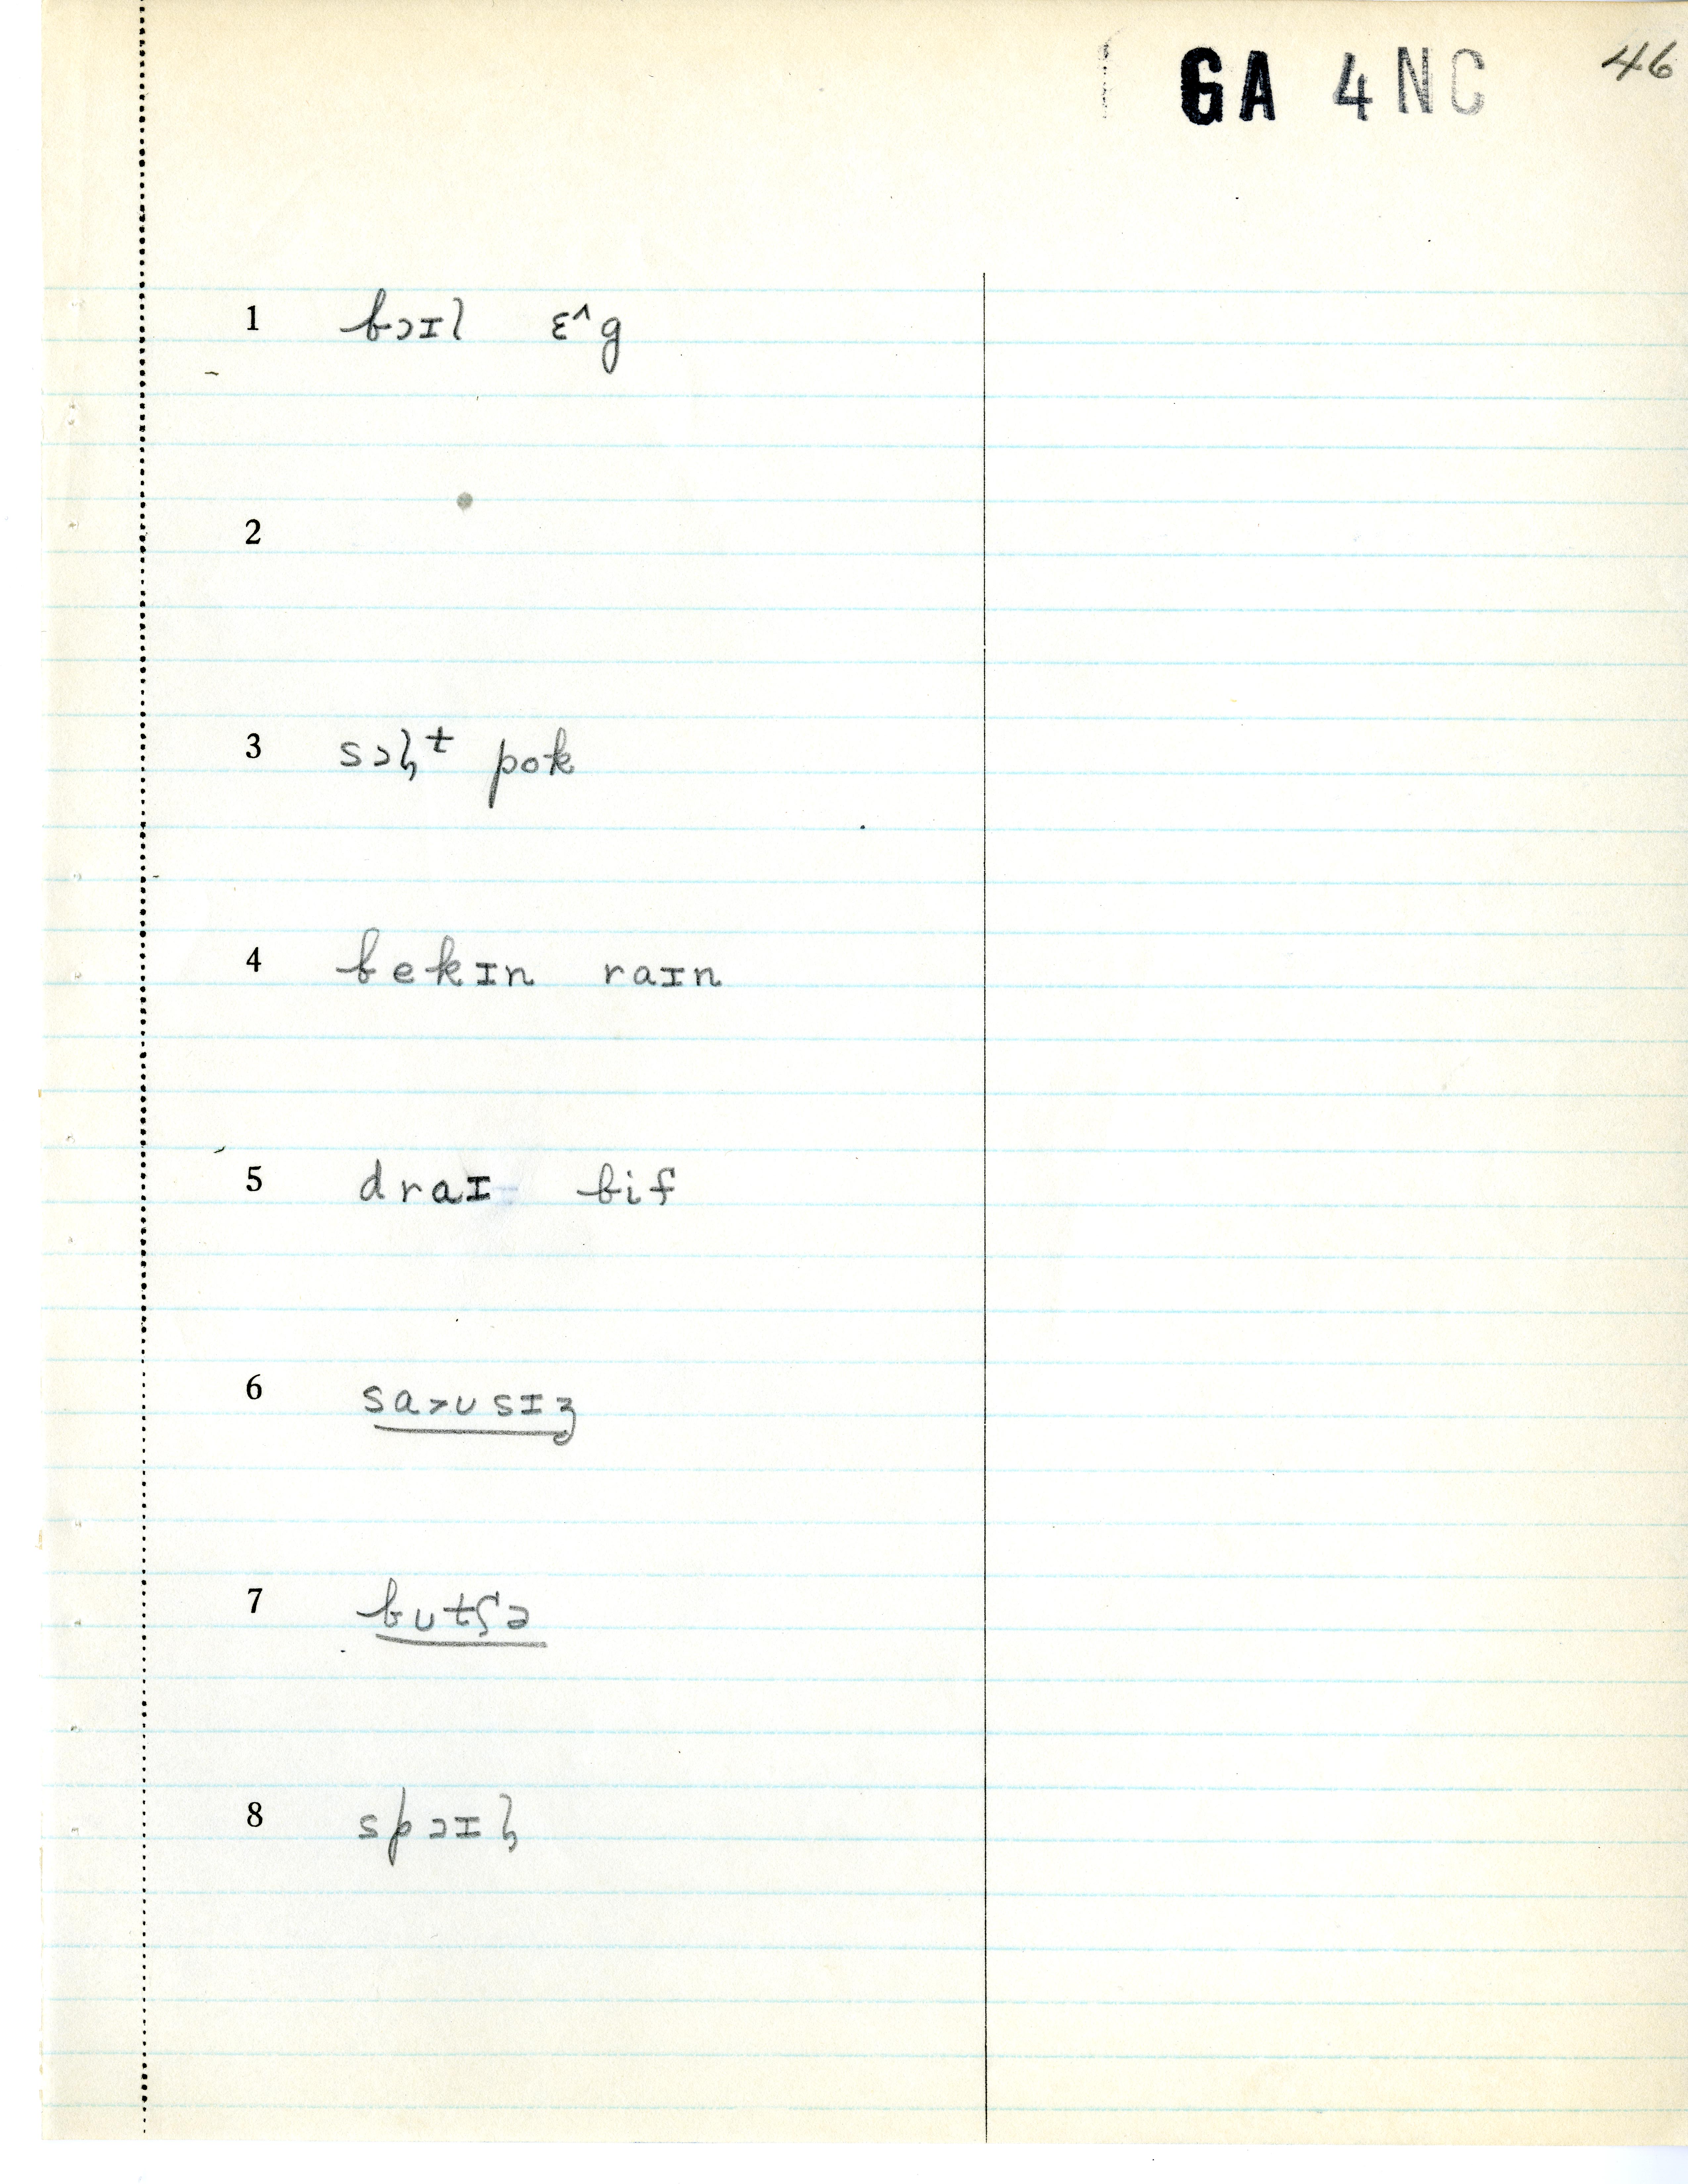 GA 4NC 46
1 bɔɪl ɛ^g
2
3 sɔɫ̩ᵗ pok
4 bekɪn raɪn
5 draɪ bif
6 sa˃ʊsɪʒ
7 bʊtʃə
8 spɔɪɫ